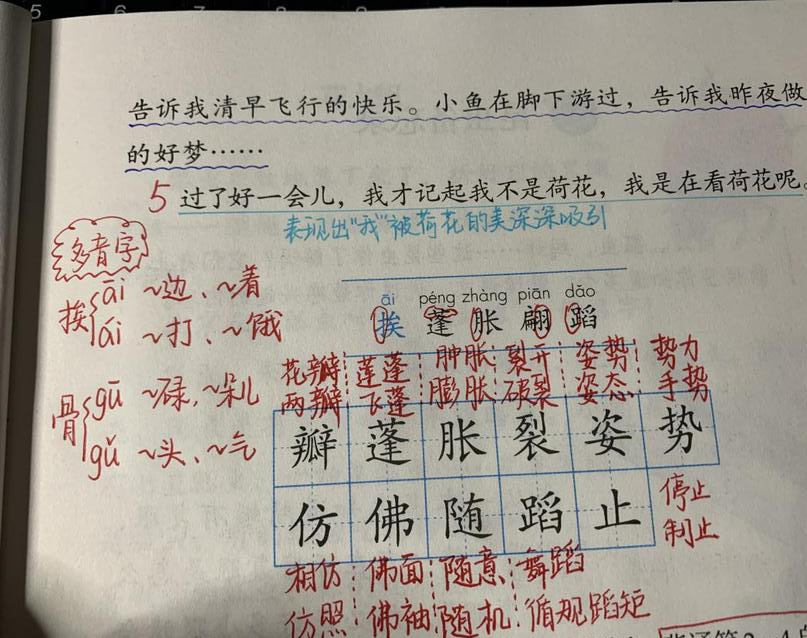 5 6 7 8
告诉我清早飞行的快乐。小鱼在脚下游过，告诉我昨夜做
的好梦……
5 过了好一会儿，我才记起我不是荷花，我是在看荷花呢。
表现出“我”被荷花的美深深吸引
多音字
挨 āi ～边、～着
ái ～打、～饿
骨 gū ～碌、～朵儿
gǔ ～头、～气
āi péng zhàng piān dǎo
挨 蓬 胀 翩 蹈
花瓣 莲蓬 肿胀 裂开 姿势 势力
两瓣 飞蓬 膨胀 破裂 姿态 手势
瓣 蓬 胀 裂 姿 势
仿 佛 随 蹈 止
停止
制止
相仿 佛面 随意 舞蹈
仿照 佛袖 随机 循规蹈矩